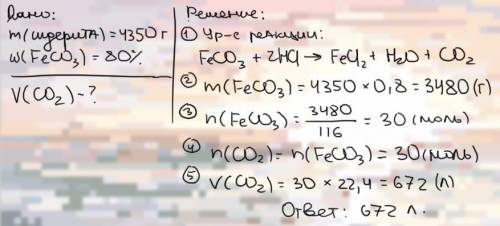 Дано:
m(сидерита) = 4350 г
w(FeCO₃) = 80%
V(CO₂) - ?
Решение:
① Ур-е реакции:
FeCO₃ + 2HCl → FeCl₂ + H₂O + CO₂
② m(FeCO₃) = 4350 × 0,8 = 3480 (г)
③ n(FeCO₃) = 3480/116 = 30 (моль)
④ n(CO₂) = n(FeCO₃) = 30 (моль)
⑤ V(CO₂) = 30 × 22,4 = 672 (л)
Ответ: 672 л.